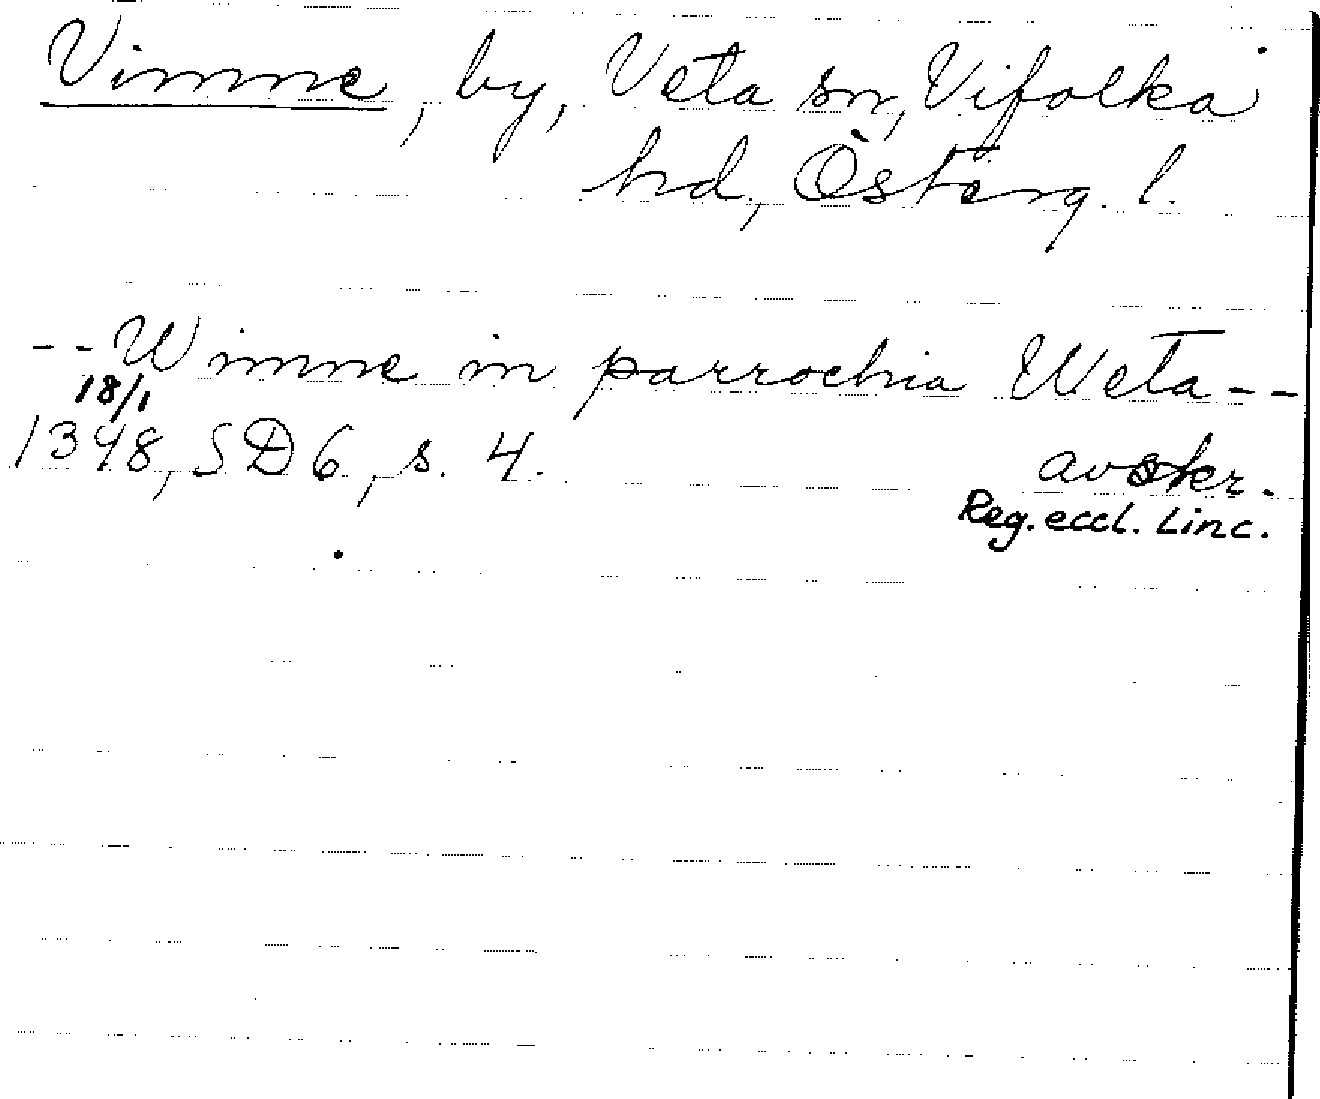 Vimne, by, Veta sn, Vifolka
hd, Österg. l.
--Wimne in parrochia Weta--
18/1
1348, SD6, s. 4. avskr.
Reg. eccl. Linc.